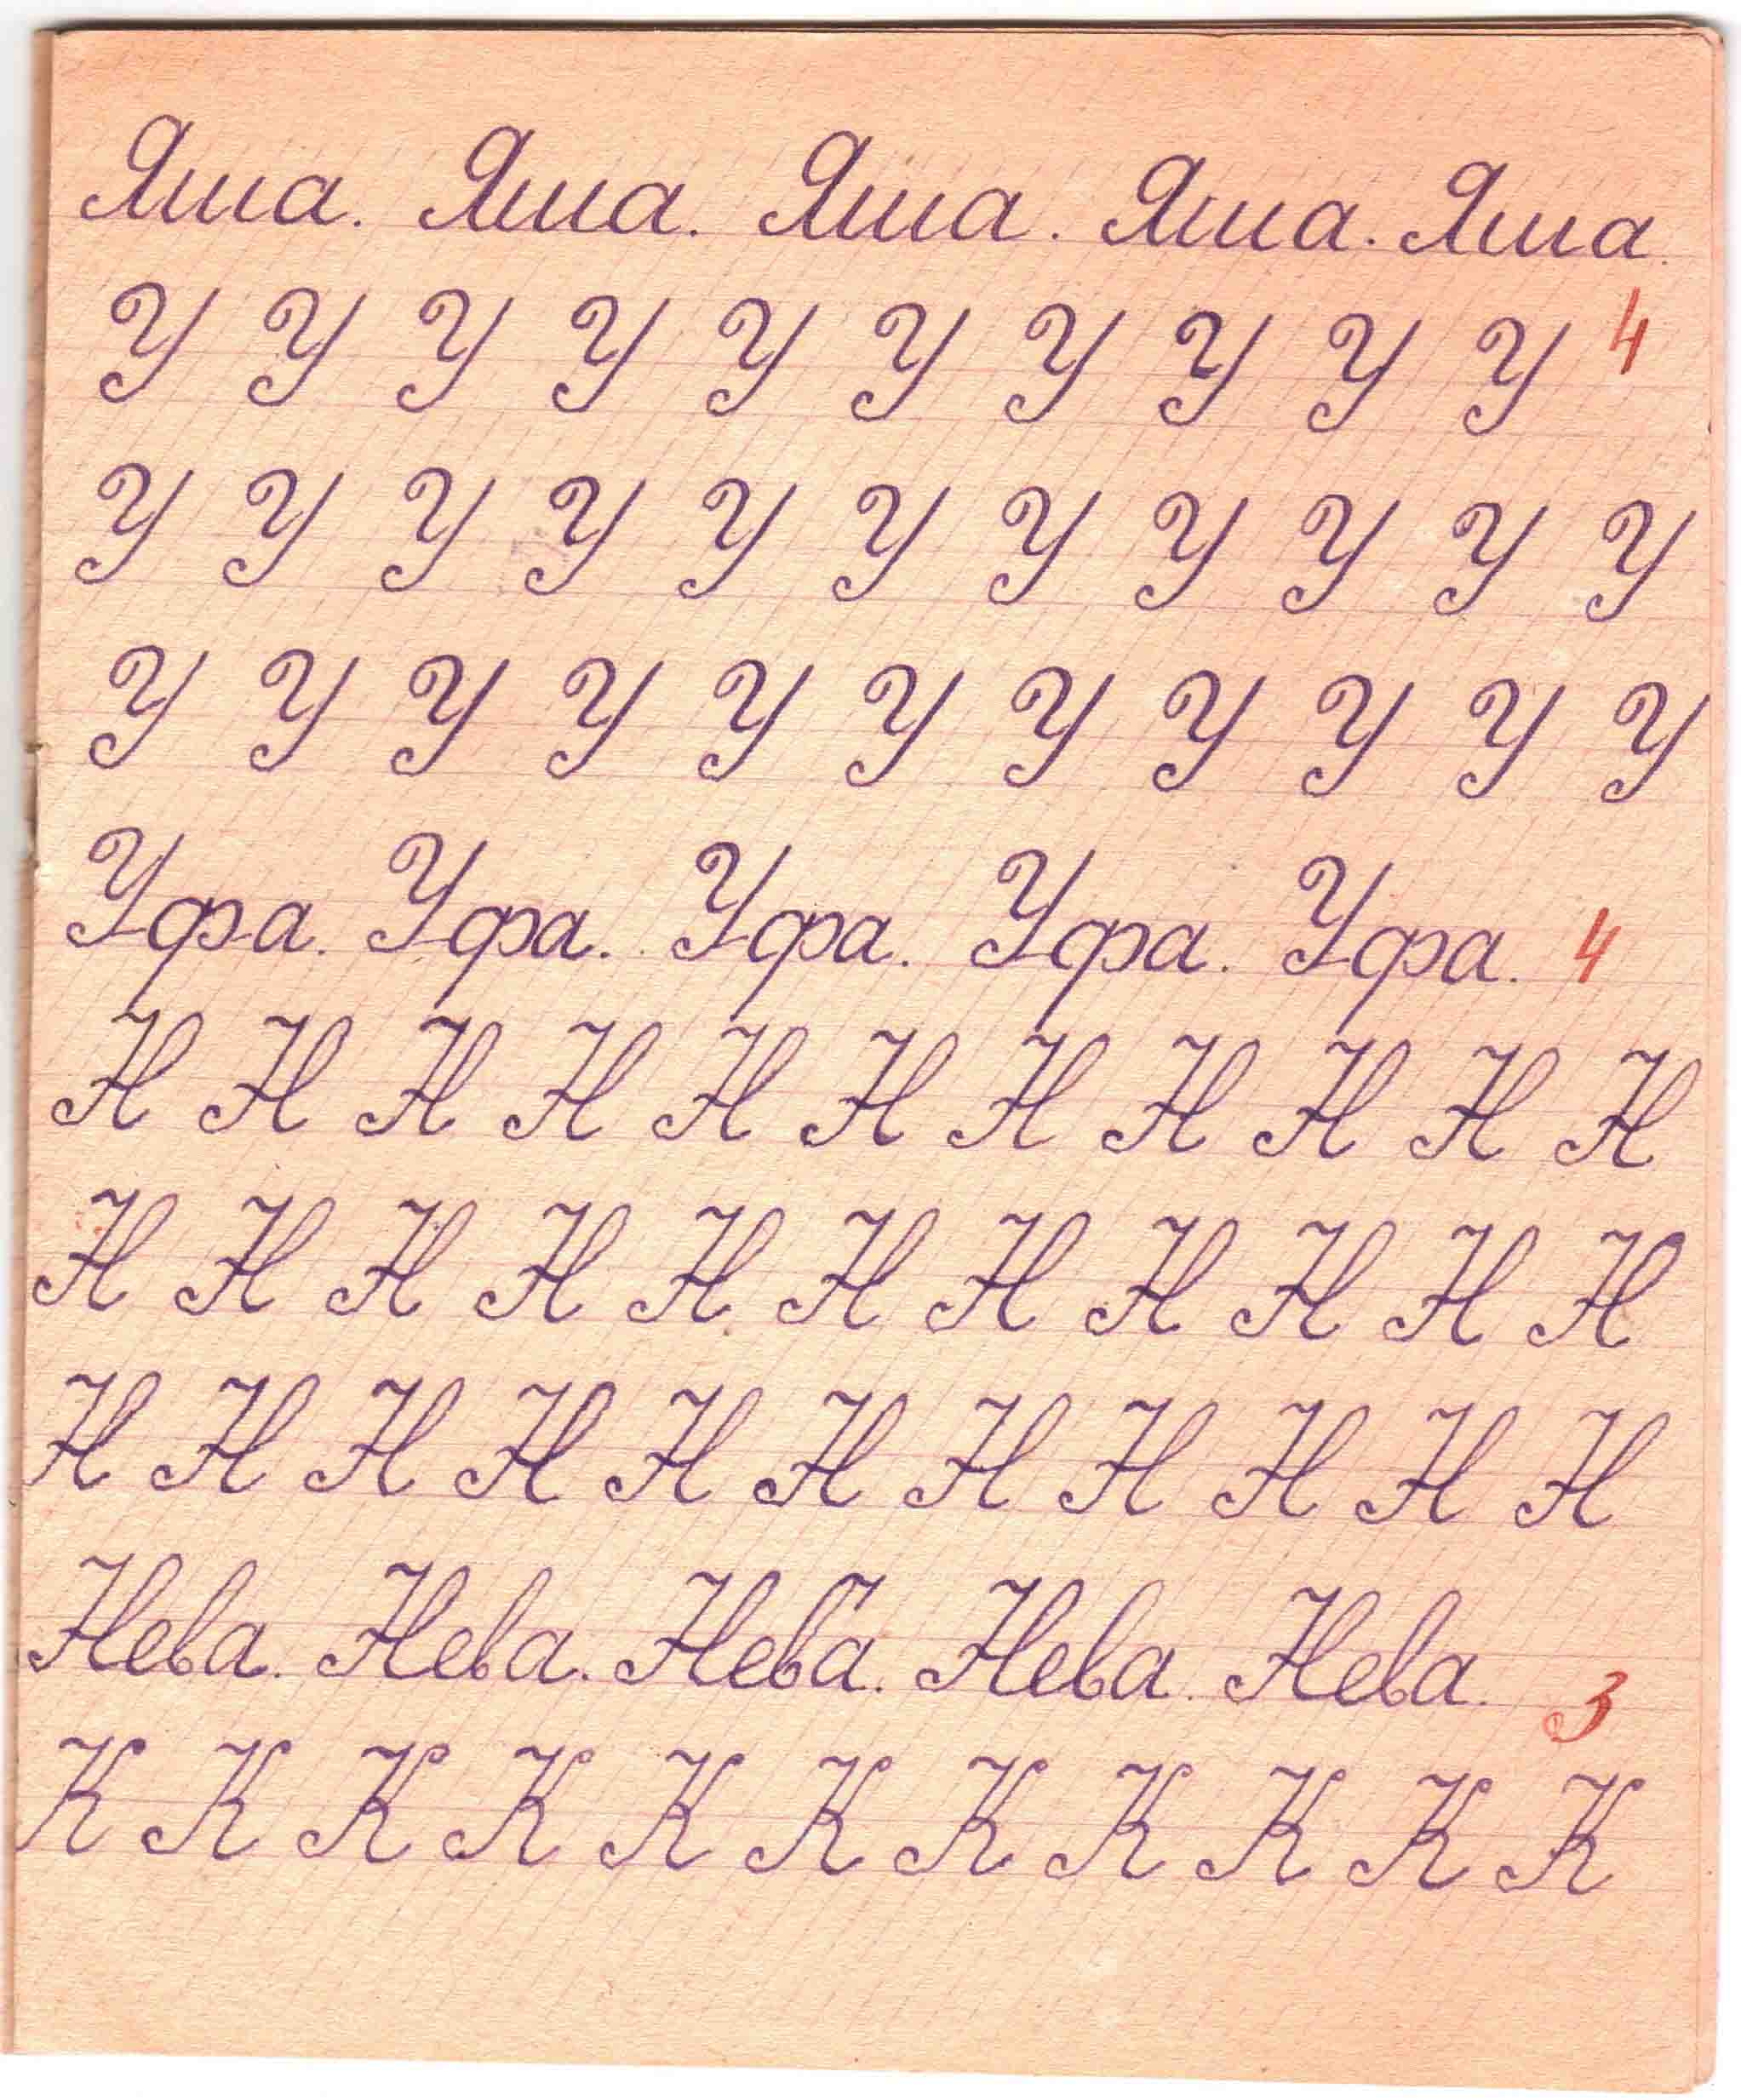 Яша. Яша. Яша. Яша. Яша.
У У У У У У У У У У 4
У У У У У У У У У У У
У У У У У У У У У У У
Уфа. Уфа. Уфа. Уфа. Уфа. 4
Н Н Н Н Н Н Н Н Н Н Н
Н Н Н Н Н Н Н Н Н Н Н
Н Н Н Н Н Н Н Н Н Н Н
Нева. Нева. Нева. Нева. Нева. 3
К К К К К К К К К К К